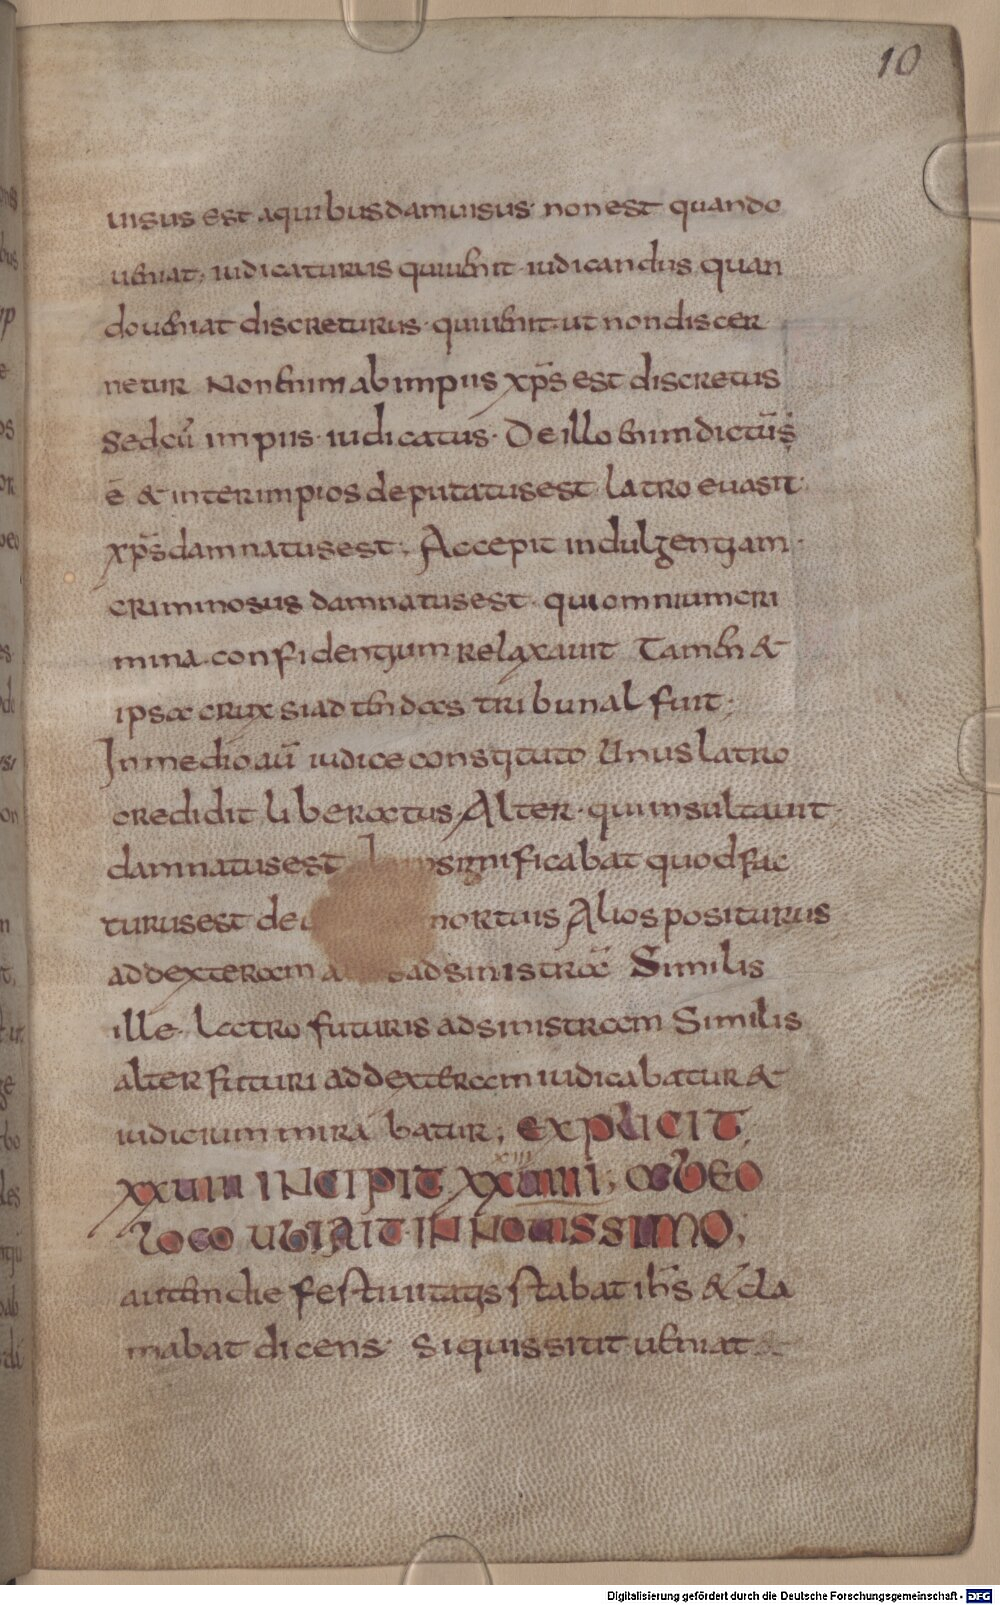 10
uisus est aquibusdamuisus· non est quando
ueniat, iudicaturus quiuenit· iudicandus quan
doueniat discreturus· quiuenit· ut nondiscer
netur Non enim abimpiis xp̄s est discretus
sedcū impiis· iudicatus· De illo enim dictūs
ē & interimpios deputatusest latro euasit·
xp̄s damnatusest; Accepit indulgentiam·
criminosus damnatusest· quiomniumcri
mina· confidentium relaxauit Tamen &
ipsa crux siad tendas tribunal fuit;
Inmedio aū iudice constituto Unus latro
credidit liberatus· Alter· quiinsultauit·
damnatusest significabat quodfac
turusest de mortuis Alios positurus
addexteram adsinistrā Similis
ille· latro futuris adsinistram Similis
alter futuri addexteram iudicabatur &
iudicium mina batur; EXPLICIT
XXVIII INCIPIT XXVIIII; ABEO
LOCO UBI AIT· IN NOUISSIMO;
autem die festiuitatis stabat ihs̄ & cla
mabat dicens· Siquissitit· ueniat
Digitalisierung gefördert durch die Deutsche Forschungsgemeinschaft - DFG